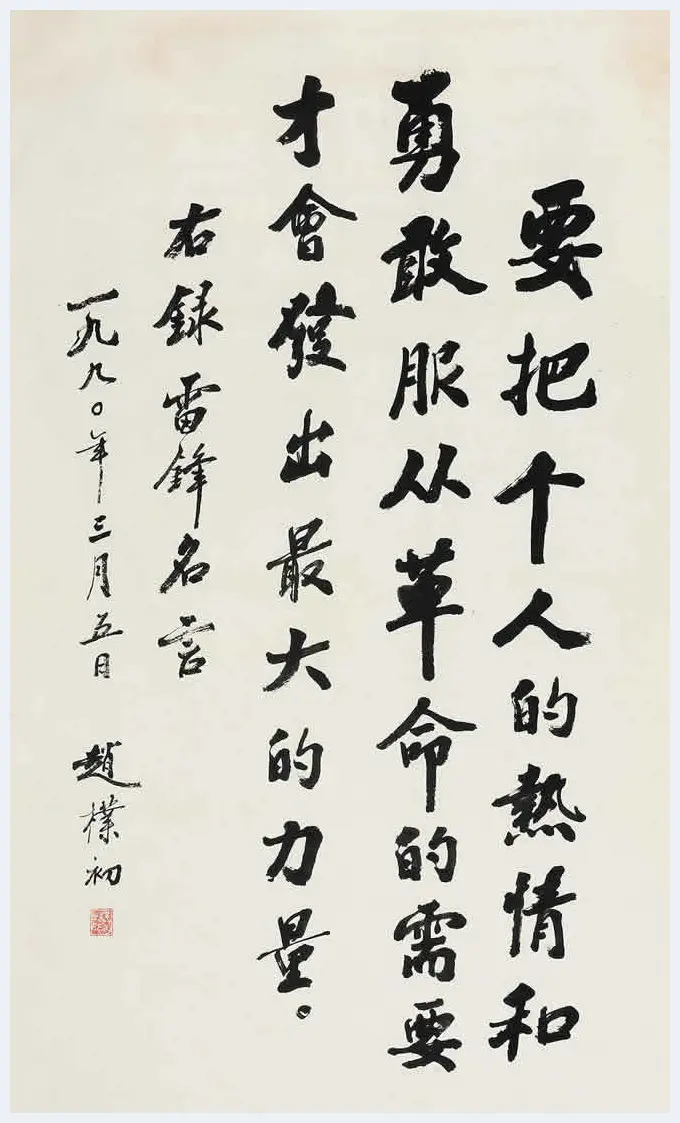 要把个人的熱情和
勇敢服从革命的需要
才會發出最大的力量。
右録雷鋒名言
一九九〇年三月五日 趙樸初